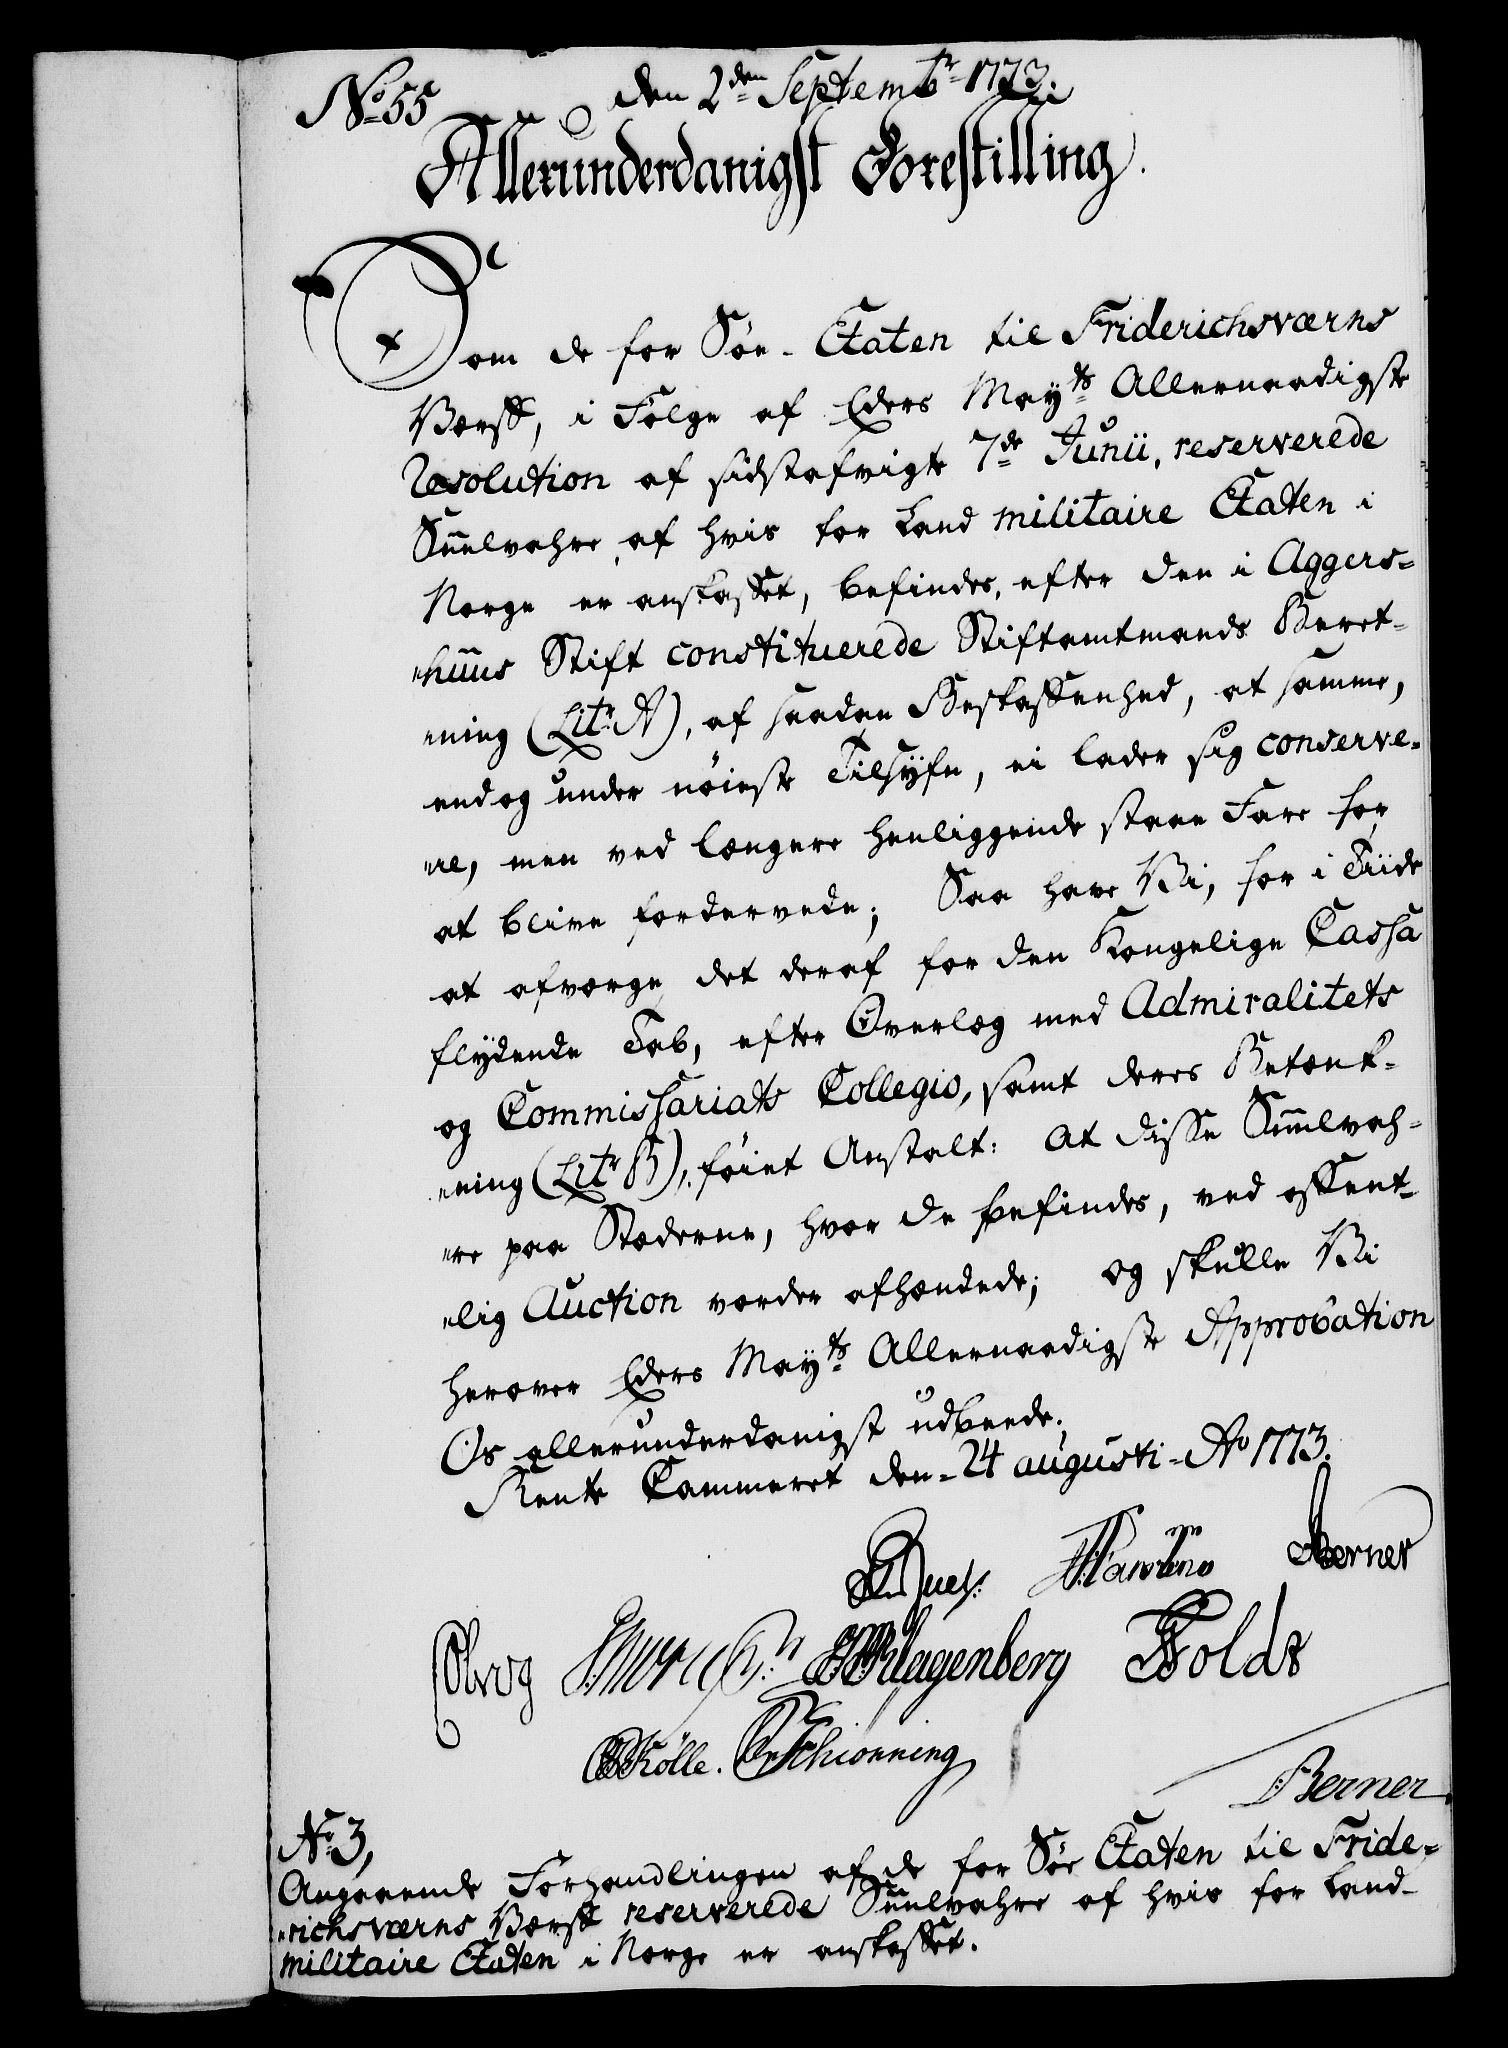 No 55
den 2den Septembr 1773.
Allerunderdanigst Forestilling.
Som de for Söe-Etaten til Friderichsværns
Værft, i Følge af Eders Mayts Allernaadigste
Resolution af sidstafvigte 7de Junii, reserverede
Smelvahre, af hvis for Land militaire Etaten i
Norge er anskaffet, befindes, efter den i Aggers-
„huus Stift constituerede Stiftamtmands Beret-
„ning (Litr A), af saadan Beskaffenhed, at samme,
endog under nöieste Tilsyfn, ei lader sig conserve-
„re, men ved længere henliggende staae Fare for
at blive fordervede; Saa have Vi, for i Tiide
at afværge det deraf for den Kongelige Cassa
flydende Tab, efter Overlæg med Admiralitets
og Commissariats Collegio, samt deres Betænk-
„ning (Litr B), föiet Anstalt: At disse Smelvah-
„re paa Stæderne, hvor de befindes, ved offent-
„lig Auction vorder afhændede; og skulle Vi
herover Eders Mayts Allernaadigste Approbation
Os allerunderdanigst udbeede.
Rente Cammeret den 24 augusti Ao 1773.
Berner
Klagenberg Holdt
Kölle. Schionning
Berner.
No 3,
Angaaende Forhandlingen af de for Söe Etaten til Fride-
„richsværns Værft reserverede Smelvahre af hvis for Land-
militaire Etaten i Norge er anskaffet.